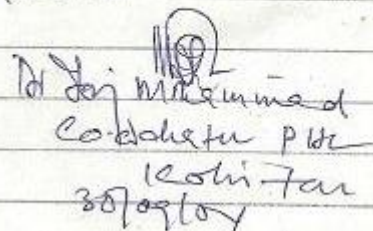 Dr Taj Muhammad
Co-ordinator PHC
Kohi-
30/09/04